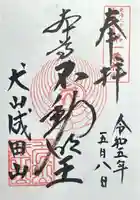 奉拝
令和五年
五月八日
本尊不動明王
犬山成田山